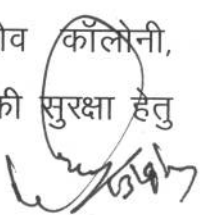 व कॉलोनी,
की सुरक्षा हेतु